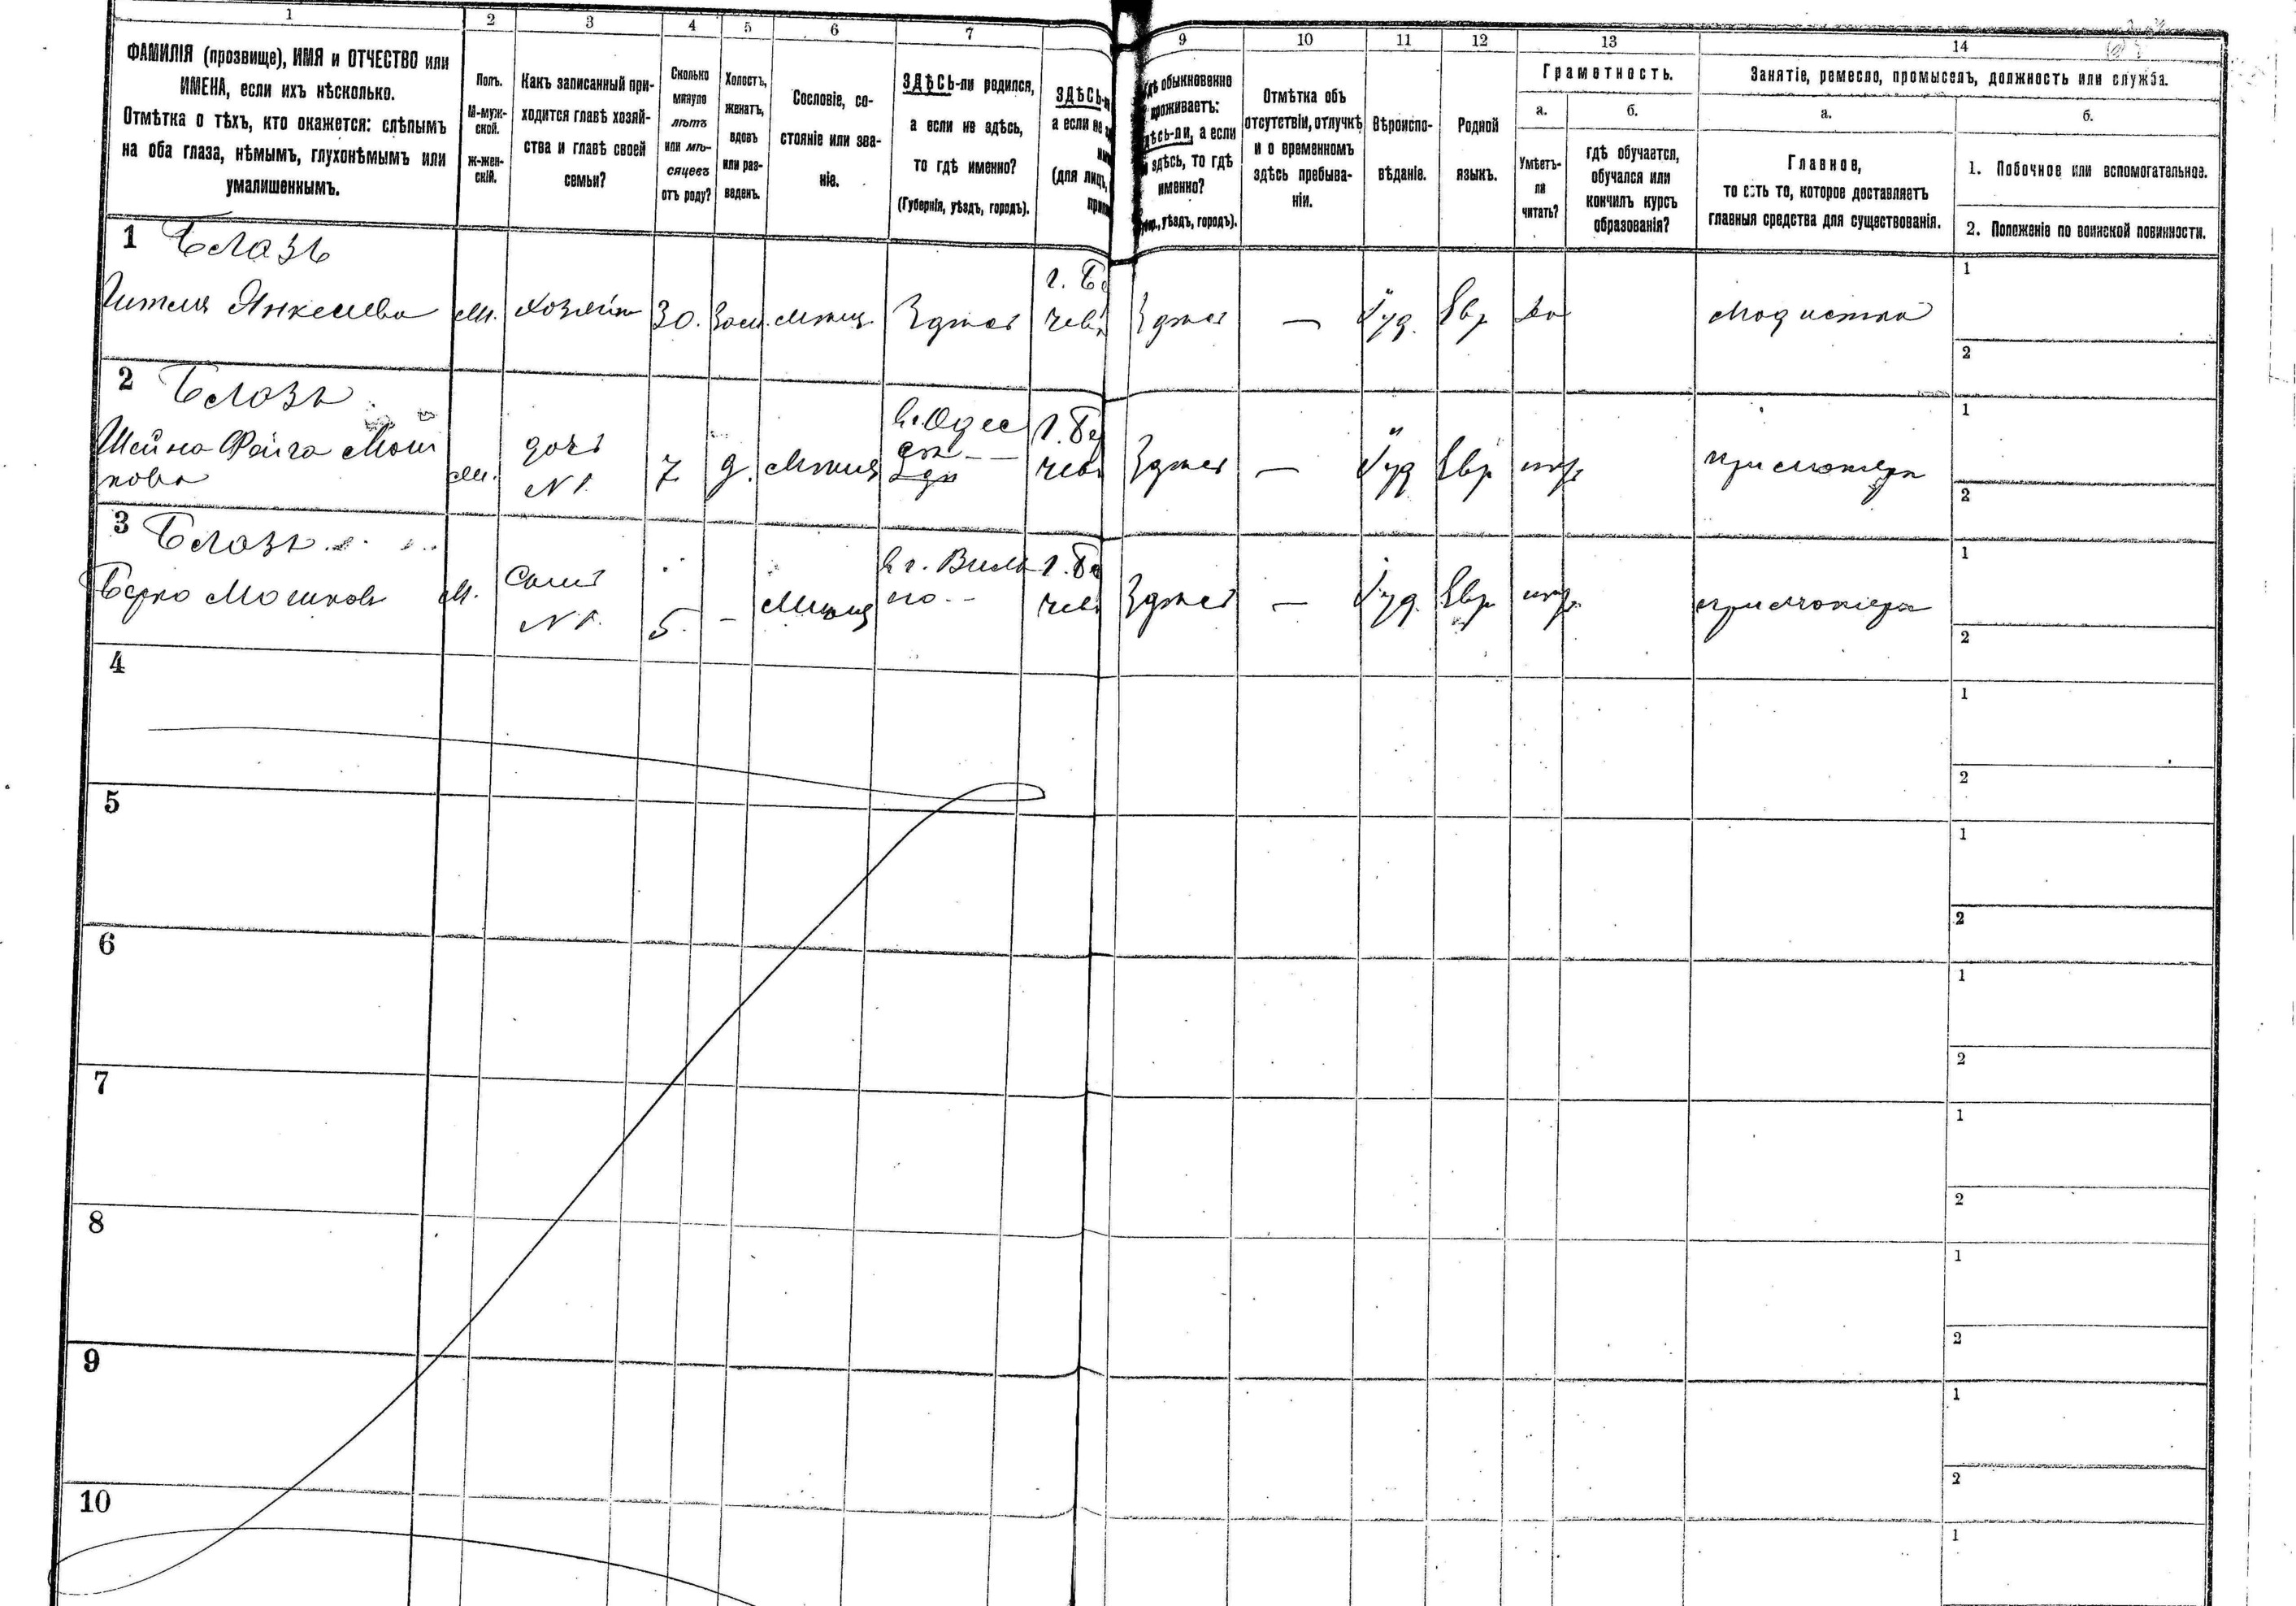 1 2 3 4 5 6 7 9 10 11 12 13 14
ФАМИЛІЯ (прозвище), ИМЯ и ОТЧЕСТВО или
ИМЕНА, если ихъ нѣсколько.
Отмѣтка о тѣхъ, кто окажется: слѣпымъ
на оба глаза, нѣмымъ, глухонѣмымъ или
умалишеннымъ.
Полъ.
М-муж-
ской.
ж-жен-
скій.
Какъ записанный при-
ходится главѣ хозяй-
ства и главѣ своей
семьи?
Сколько
минуло
лѣтъ
или мѣ-
сяцевъ
отъ роду?
Холостъ,
женатъ,
вдовъ
или раз-
веденъ.
Сословіе, со-
стояніе или зва-
ніе.
ЗДѢСЬ-ли родился,
а если не здѣсь,
то гдѣ именно?
(Губернія, уѣздъ, городъ).
ЗДѢСЬ-
а если не
(для лицъ,
обыкновенно
проживаетъ:
а если
здѣсь, то гдѣ
именно?
уѣздъ, городъ).
Отмѣтка объ
отсутствіи, отлучкѣ
и о временномъ
здѣсь пребыва-
ніи.
Вѣроиспо-
вѣданіе.
Родной
языкъ.
Грамотность.
а. б.
Умѣетъ-
ли
читать?
гдѣ обучается,
обучался или
кончилъ курсъ
образованія?
Занятіе, ремесло, промыселъ, должность или служба.
а. б.
Главное,
то есть то, которое доставляетъ
главныя средства для существованія.
1. Побочное или вспомогательное.
2. Положеніе по воинской повинности.
1 Блазъ
Янкелева м. хозяйка 30. Зам. мѣщ Здѣсь Здѣсь — Іуд. Евр да модистка
1
2
2 Блазъ
Шейна Файга Мош
кова дочь
N 1. 7 д. мѣщ Здѣсь — Іуд Евр при матери
1
2
3 Блазъ
Берко Мошковъ М. Сынъ
N 1. 5. - Мѣщ Здѣсь — Іуд. Евр при матери
1
2
4
1
2
5
1
2
6
1
2
7
1
2
8
1
2
9
1
2
10
1